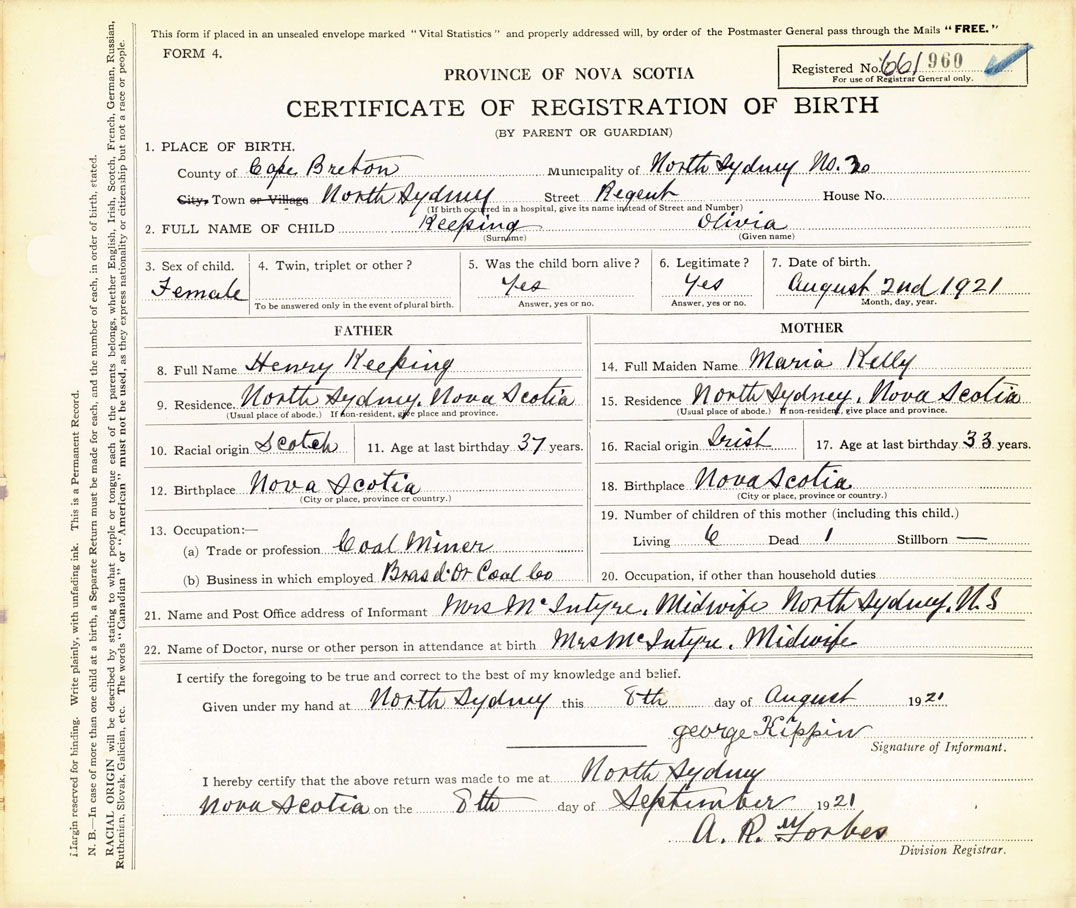 This form if placed in an unsealed envelope marked "Vital Statistics" and properly addressed will, by order of the Postmaster General pass through the Mails "FREE."
FORM 4.
Registered No. 661 960
For use of Registrar General only.
PROVINCE OF NOVA SCOTIA
CERTIFICATE OF REGISTRATION OF BIRTH
(BY PARENT OR GUARDIAN)
1. PLACE OF BIRTH.
County of Cape Breton Municipality of North Sydney No.
City, Town or Village North Sydney Street Regent House No.
(If birth occurred in a hospital, give its name instead of Street and Number)
2. FULL NAME OF CHILD Keeping Olivia
(Surname) (Given name)
3. Sex of child. 4. Twin, triplet or other? 5. Was the child born alive? 6. Legitimate? 7. Date of birth.
Female Yes Yes August 2nd 1921
To be answered only in the event of plural birth. Answer, yes or no. Answer, yes or no. Month, day, year.
FATHER
8. Full Name Henry Keeping
9. Residence. North Sydney. Nova Scotia
(Usual place of abode.) If non-resident, give place and province.
10. Racial origin Scotch 11. Age at last birthday 37 years.
12. Birthplace Nova Scotia
(City or place, province or country.)
13. Occupation:—
(a) Trade or profession Coal Miner
(b) Business in which employed Bras d'Or Coal Co
MOTHER
14. Full Maiden Name Maria Kelly
15. Residence North Sydney, Nova Scotia
(Usual place of abode.) If non-resident, give place and province.
16. Racial origin Irish 17. Age at last birthday 33 years.
18. Birthplace Nova Scotia
(City or place, province or country.)
19. Number of children of this mother (including this child.)
Living 6 Dead 1 Stillborn —
20. Occupation, if other than household duties
21. Name and Post Office address of Informant Mrs McIntyre. Midwife North Sydney, N.S
22. Name of Doctor, nurse or other person in attendance at birth Mrs McIntyre. Midwife
I certify the foregoing to be true and correct to the best of my knowledge and belief.
Given under my hand at North Sydney this 8th day of August 1921
george Kippin
Signature of Informant.
I hereby certify that the above return was made to me at North Sydney
Nova Scotia on the 8th day of September 1921
A. R. Forbes
Division Registrar.
Margin reserved for binding. Write plainly, with unfading ink. This is a Permanent Record.
N. B.—In case of more than one child at a birth, a Separate Return must be made for each, and the number of each, in order of birth, stated.
RACIAL ORIGIN will be described by stating to what people or tongue each of the parents belongs, whether English, Irish, Scotch, French, German, Russian,
Ruthenian, Slovak, Galician, etc. The words "Canadian" or "American" must not be used, as they express nationality or citizenship but not a race or people.